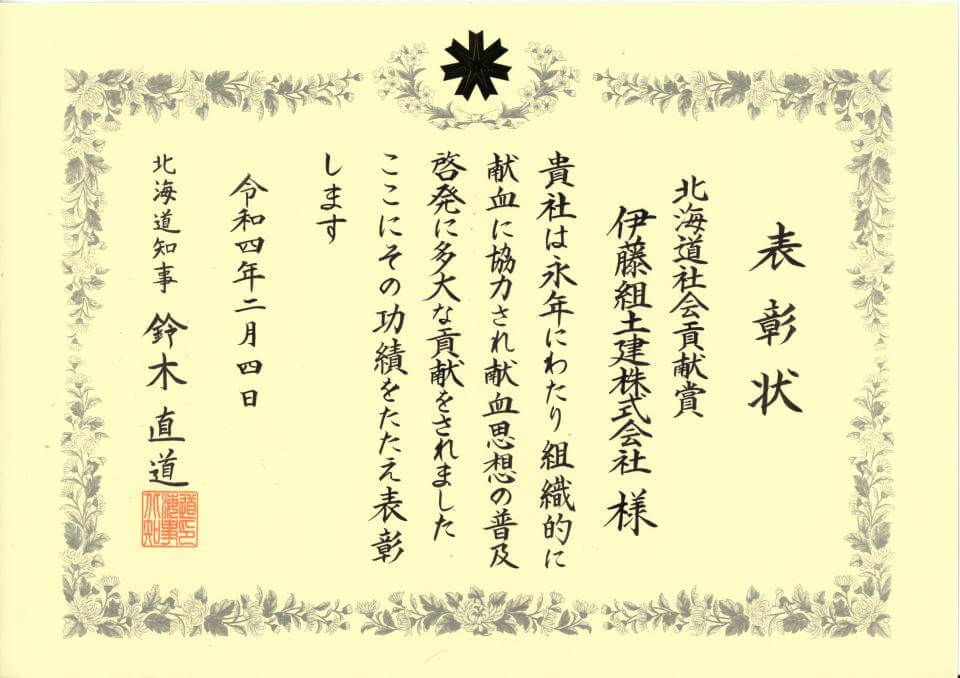 表彰状
北海道社会貢献賞
伊藤組土建株式会社 様
貴社は永年にわたり組織的に
献血に協力され献血思想の普及
啓発に多大な貢献をされました
ここにその功績をたたえ表彰
します
令和四年二月四日
北海道知事 鈴木直道
北海道知事印